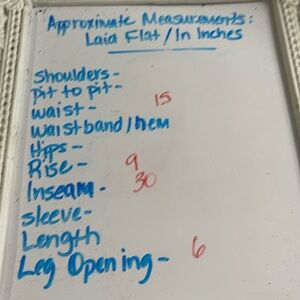 Approximate Measurements:
Laid Flat/In Inches
Shoulders-
Pit to pit-
Waist- 15
Waistband/hem
Hips-
Rise- 9
Inseam- 30
Sleeve-
Length
Leg Opening- 6